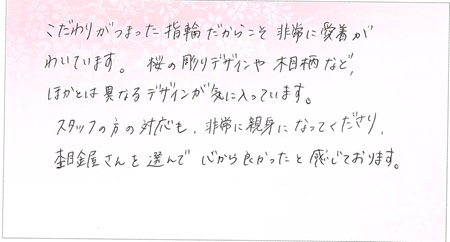 こだわりがつまった指輪だからこそ非常に愛着が
わいています。桜の彫りデザインや木目柄など、
ほかとは異なるデザインが気に入っています。
スタッフの方の対応も、非常に親身になってくださり、
杢目金屋さんを選んで心から良かったと感じております。